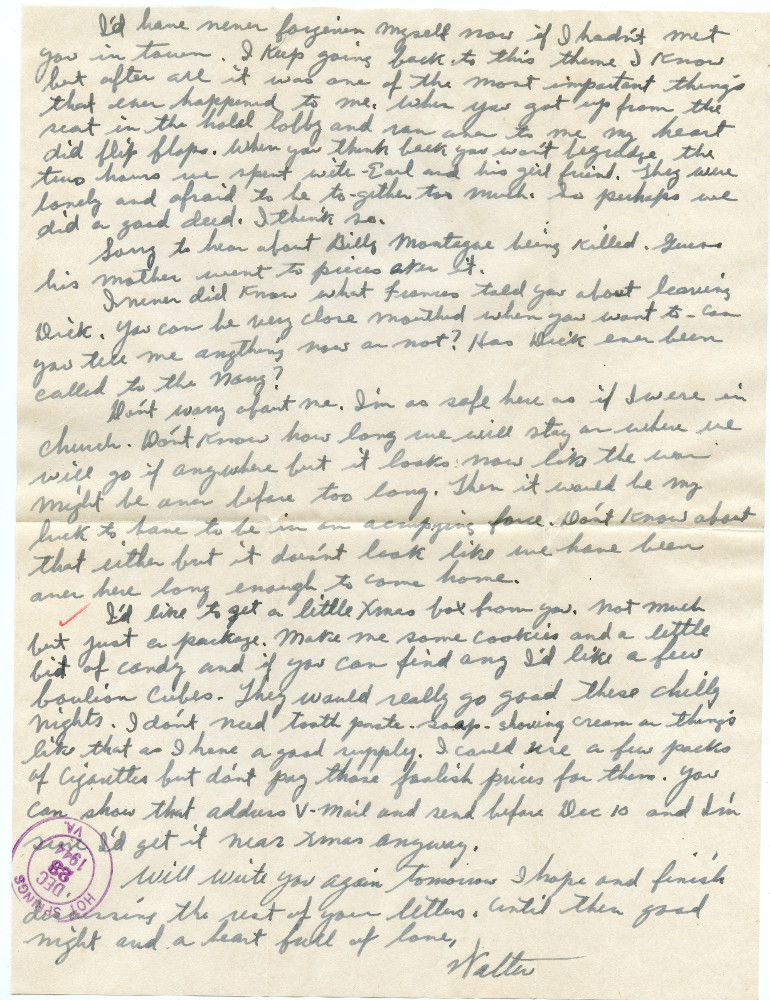 I'd have never forgiven myself now if I hadn't met
you in town. I keep going back to this theme I know
but after all it was one of the most important things
that ever happened to me. When you got up from the
seat in the hotel lobby and ran over to me my heart
did flip flops. When you think back you won't begrudge the
two hours we spent with Earl and his girl friend. They were
lonely and afraid to be to-gether too much. So perhaps we
did a good deed. I think so.
Sorry to hear about Billy Montague being killed. Guess
his mother went to pieces over it.
I never did know what Frances told you about leaving
Dick. You can be very close mouthed when you want to - can
you tell me anything now or not? Has Dick ever been
called to the Navy?
Don't worry about me. I'm as safe here as if I were in
church. Don't know how long we will stay or where we
will go if anywhere but it looks now like the war
might be over before too long. Then it would be my
luck to have to be in an occupying force. Don't know about
that either but it doesn't look like we have been
over here long enough to come home.
I'd like to get a little Xmas box from you. Not much
but just a package. Make me some cookies and a little
bit of candy and if you can find any I'd like a few
boulion cubes. They would really go good these chilly
nights. I don't need tooth paste - soap - shaving cream or things
like that as I have a good supply. I could use a few packs
of cigarttes but don't pay those foolish prices for them. You
can show that address V-Mail and send before Dec 10 and I'm
sure I'd get it near Xmas anyway.
HOT SPRINGS VA.
DEC
28
1944
Will write you again tomorrow I hope and finish
discussing the rest of your letters. Until then good
night and a heart full of love,
Walter